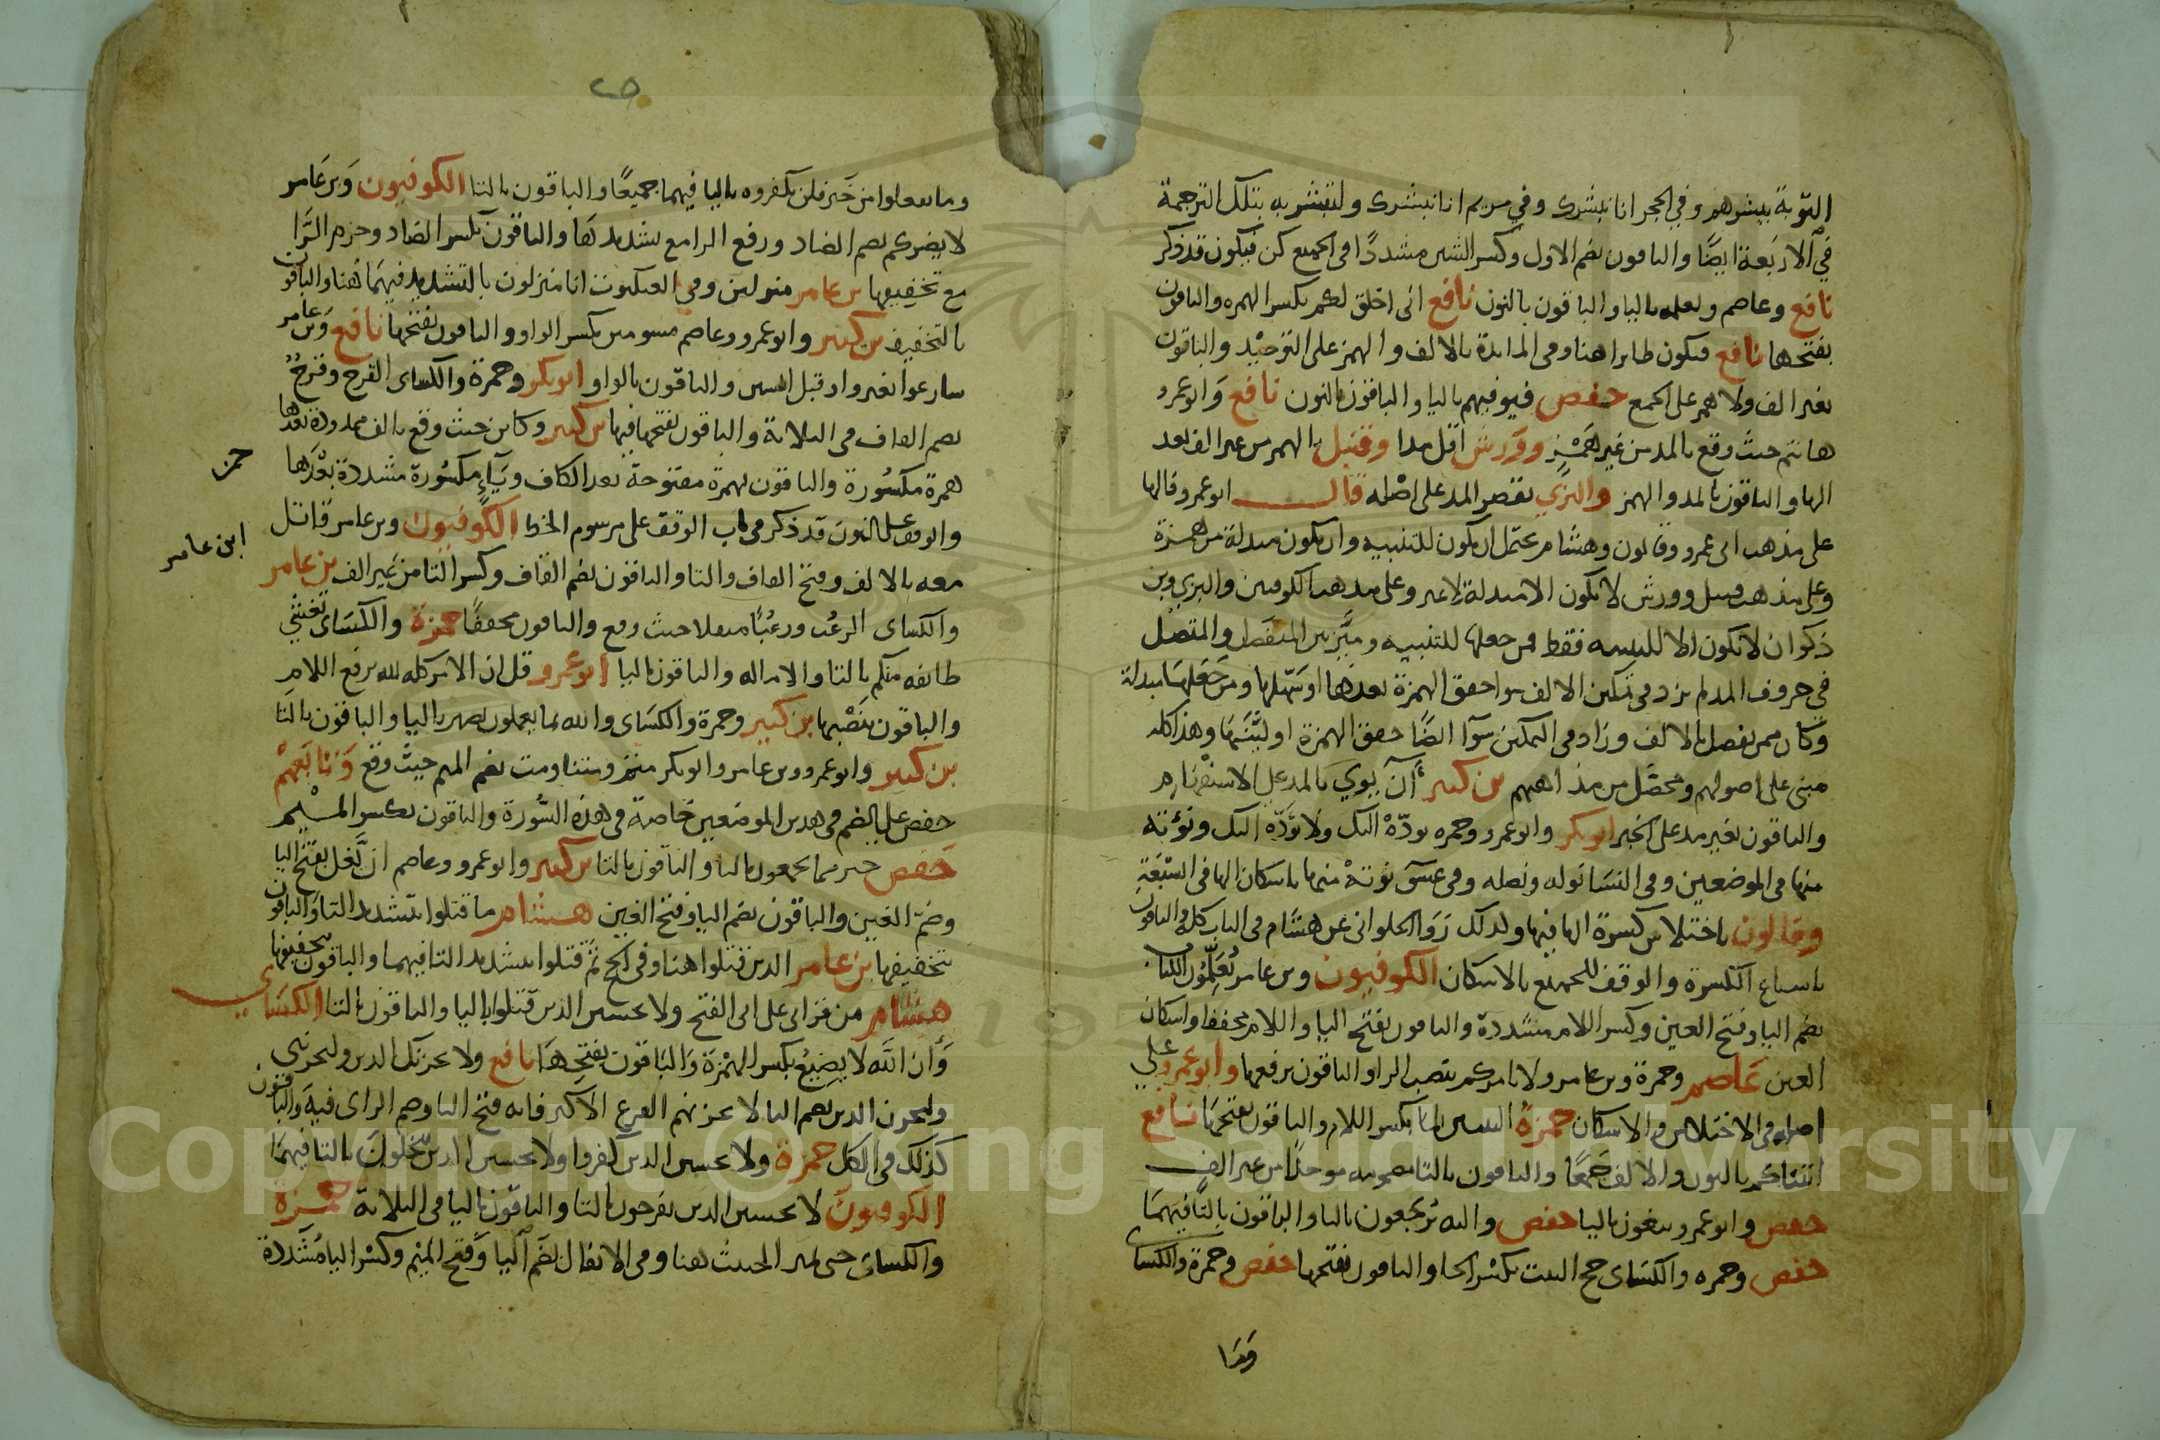 التوبة يبشرهم وفي الحجر انا نبشرك وفي مريم انا نبشرك ولتبشر به بتلك الترجمة
في الاربعة ايضا والباقون بضم الاول وكسر الشين مشددا في الجميع كن فيكون قد ذكر
نافع وعاصم ويعلمه باليا والباقون بالنون نافع اني اخلق لكم بكسر الهمزه والباقون
بفتحها نافع فيكون طايرا هنا وفي المايدة بالالف والهمز على التوحيد والباقون
بغير الف ولا همز على الجمع حفص فيوفيهم باليا والباقون بالنون نافع وابو عمرو
هانتم حيث وقع بالمد من غير همز وورش اقل مدا وقنبل بالهمز من غير الف بعد
الها والباقون بالمد والهمز والبزي بقصر المد على اصله قال ابو عمرو فالها
على مذهب ابي عمرو وقالون وهشام يحتمل ان يكون للتنبيه وان يكون مبدلة من همزة
وعلى مذهب قنبل وورش لا يكون الا مبدلة لا غير وعلى مذهب الكوفيين والبزي وبن
ذكوان لا تكون الا للتنبيه فقط فمن جعلها للتنبيه وميز بين المنفصل والمتصل
في حروف المد لم يزد في تمكين الالف سوا حقق الهمزة بعدها او سهلها ومن جعلها مبدلة
وكان ممن يفصل بالالف وزاد في التمكين سوآ ايضا حقق الهمزة او لينها وهذا كله
مبني على اصولهم ومحصل من مذاهبهم بن كثير أآن يوتى بالمد على الاستفهام
والباقون بغير مد على الخبر ابو بكر وابو عمرو وحمزه يودّهْ اليك ولا يودّه اليك ونؤته
منها في الموضعين وفي النسا نوله ونصله وفي عسق نوتهْ منها باسكان الها في السبعة
وقالون باختلاس كسرة الها فيها ولذلك روا الحلواني عن هشام في الباب كله والباقون
باشباع الكسرة والوقف للجميع بالاسكان الكوفيون وبن عامر تُعَلِّمُون الكتاب
بضم اليا وفتح العين وكسر اللام مشددة والباقون بفتح اليا واللام مخففا واسكان
العين عاصم وحمزة وبن عامر ولا يامركم بنصب الرا والباقون برفعها وابو عمرو على
اصله في الاختلاس والاسكان حمزة النبيين لما بكسر اللام والباقون بفتحها نافع
اتيناكم بالنون والالف جمعا والباقون بالتا مضمومه موحدا من غير الف
حفص وابو عمرو يبغون باليا حفص واليه يرجعون باليا والباقون بالتا فيهما
حفص وحمزه والكساى حج البيت بكسر الحا والباقون بفتحها حفص وحمزة والكساى
وما
وما يفعلوا من خير فلن يكفروه باليا فيهما جميعا والباقون بالتا الكوفيون وبن عامر
لا يضركم بضم الضاد ورفع الرا مع تشديدها والباقون بكسر الضاد وجزم الرا
مع تخفيفها بن عامر منزلين وفي العنكبوت انا منزلون بالتشديد فيهما هنا والباقون
بالتخفيف بن كثير وابو عمرو وعاصم مسومين بكسر الواو والباقون بفتحها نافع وبن عامر
سارعوا بغير واو قبل السين والباقون بالواو ابو بكر وحمزة والكساى القرح وقرحٌ
بضم القاف في الثلاثة والباقون بفتحها فيها بن كثير وكاين حيث وقع بالف ممدودة بعدها
همزة مكسورة والباقون بهمزة مفتوحة بعد الكاف ويآء مكسورة مشددة بعدها
والوقف على النون قد ذكر في باب الوقف على مرسوم الخط الكوفيون وبن عامر قاتل
معه بالالف وفتح القاف والتا والباقون بضم القاف وكسر التا من غير الف بن عامر
والكساى الرعُب ورعُبًا مثقلا حيث وقع والباقون مخففا حمزة والكساى تغشى
طايفه منكم بالتا والاماله والباقون باليا ابو عمرو قل ان الامر كله لله برفع اللام
والباقون بنصبها بن كثير وحمزة والكساى والله بما يعملون بصير باليا والباقون بالتا
بن كثير وابو عمرو وبن عامر وابو بكر متم ومتنا ومت بضم الميم حيث وقع وتابعهم
حفص على الضم في هذين الموضعين خاصة في هذه السورة والباقون بكسر الميم
حفص خير مما يجمعون باليا والباقون بالتا بن كثير وابو عمرو وعاصم ان يَّغل بفتح اليا
وضم الغين والباقون بضم اليا وفتح الغين هشام ما قتلوا بتشديد التا والباقون
بتخفيفها بن عامر الذين قتلوا هنا وفي الحج ثم قتلوا بتشديد التا فيهما والباقون بتخفيفها
هشام من قراتي على ابي الفتح ولا يحسبن الذين قتلوا باليا والباقون بالتا الكساى
وأن الله لا يضيع بكسر الهمزة والباقون بفتحها نافع ولا يحزنك الذين وليحزنني
وليحزن الذين بضم اليا لا يحزنهم الفزع الاكبر فانه فتح اليا وضم الزاى فيه والباقون
كذلك في الكل حمزة ولا يحسبن الذين كفروا ولا يحسبن الذين يبخلون بالتا فيهما
الكوفيون لا يحسبن الذين يفرحون بالتا والباقون باليا في الثلاثة حمزة
والكساى حتى يميز الخبيث هنا وفي الانفال بضم اليا وفتح الميم وكسر اليا مشددة
ابن عامر
Copyright © King Saud University